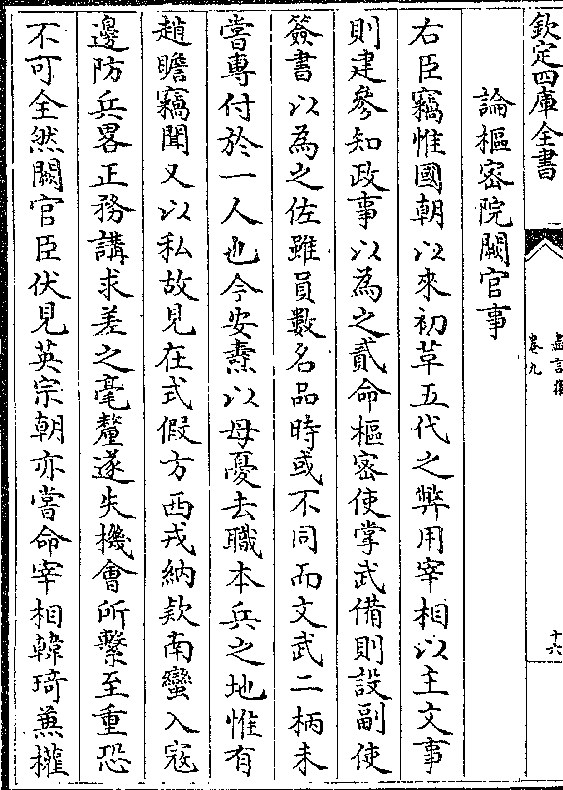 欽定四庫全書
盡言集
卷九
十六
論樞密院闕官事
右臣竊惟國朝以來初草五代之弊用宰相以主文事
則建參知政事以為之貳命樞密使掌武備則設副使
簽書以為之佐雖員數名品時或不同而文武二柄未
嘗專付於一人也今安燾以母憂去職本兵之地惟有
趙瞻竊聞又以私故見在式假方西戎納欵南蠻入寇
邊防兵畧正務講求差之毫釐遂失機會所繫至重恐
不可全然闕官臣伏見英宗朝亦嘗命宰相韓琦蕪權